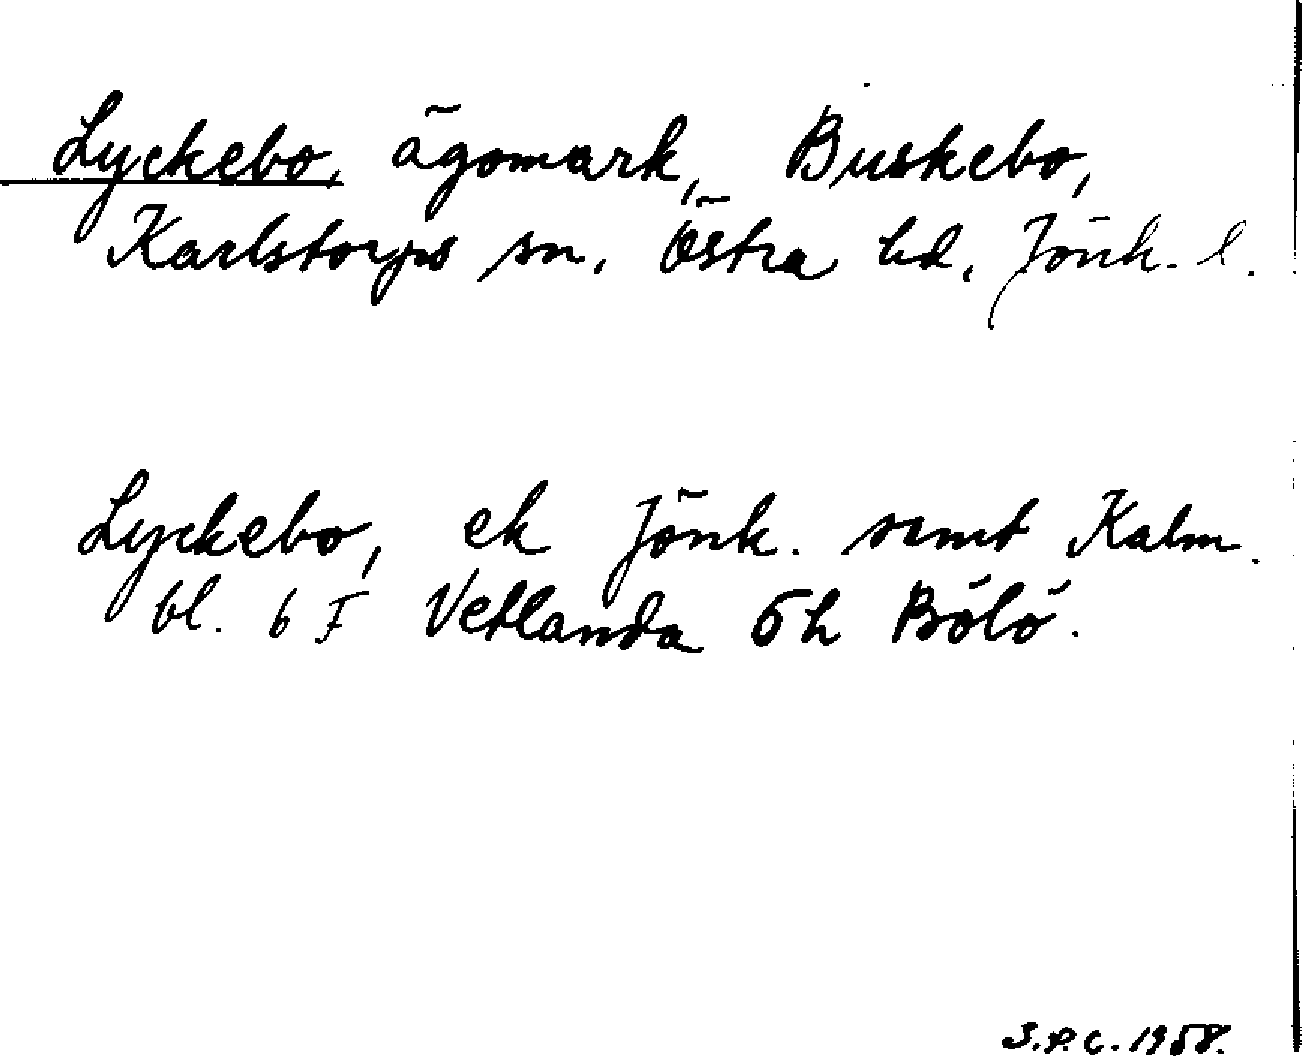 Lyckebo, ägomark, Buskebo,
Karlstorps sn. Östra hd. Jönk. l.
Lyckebo, ek Jönk. samt Kalm.
bl. 6 F Vetlanda 5h Bölö.
S.P.C. 1958.